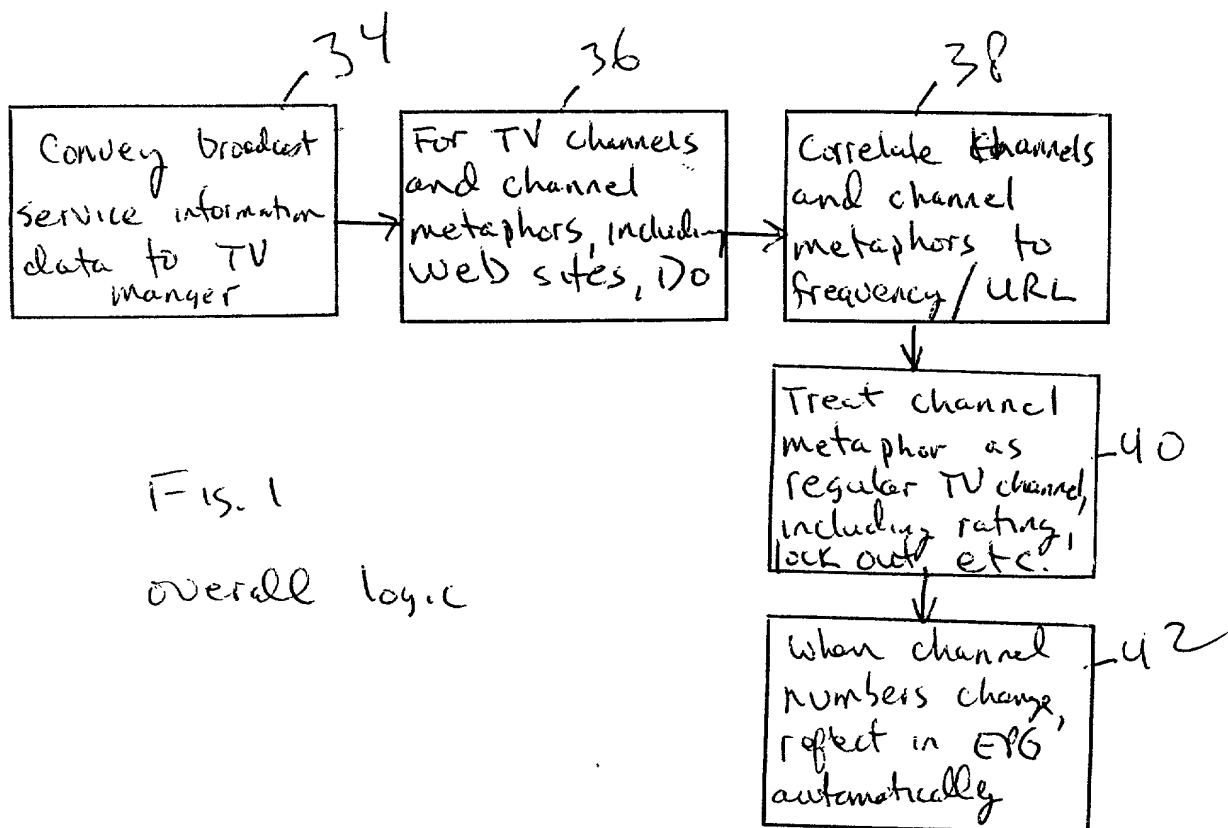 34
Convey broadcast
service information
data to TV
manger
36
For TV channels
and channel
metaphors, including
Web sites, Do
38
Correlate channels
and channel
metaphors to
frequency / URL
Treat channel
metaphor as
regular TV channel,
including rating,
lock out, etc.
40
When channel
numbers change,
reflect in EPG
automatically
42
Fig. 1
overall logic